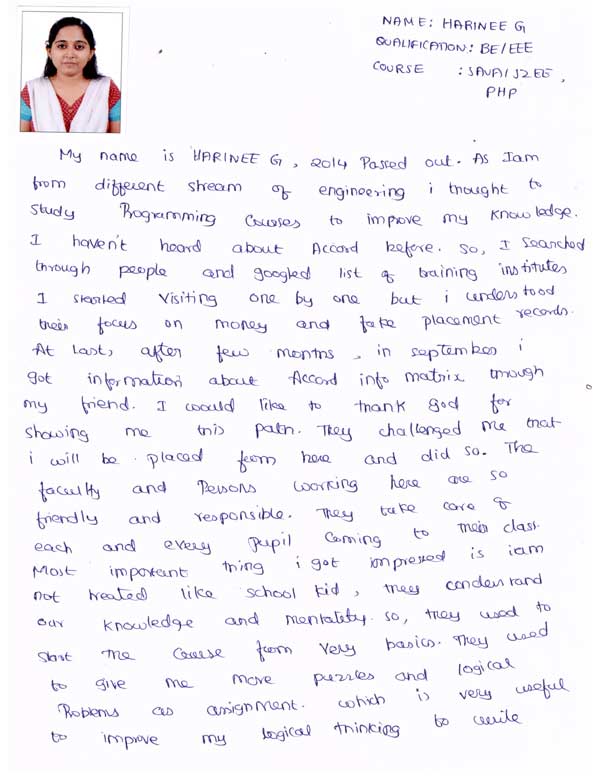 NAME: HARINEE G
QUALIFICATION: BE/EEE
COURSE : JAVA/J2EE,
PHP
My name is HARINEE G, 2014 Passed out. As Iam
from different stream of engineering i thought to
study Programming Courses to improve my knowledge.
I haven't heard about Accord before. So, I searched
through people and googled list of training institutes
I started visiting one by one but i understood
their focus on money and fake placement records.
At last, after few months, in september i
got information about Accord info matrix through
my friend. I would like to thank god for
showing me this path. They challenged me that
i will be placed from here and did so. The
faculty and Persons working here are so
friendly and responsible. They take care of
each and every pupil coming to their class.
Most important thing i got impressed is iam
not treated like school kid, they understand
our knowledge and mentality. so, they used to
start the course from very basics. They used
to give me more puzzles and logical
Problems as assignment. which is very useful
to improve my logical thinking to write